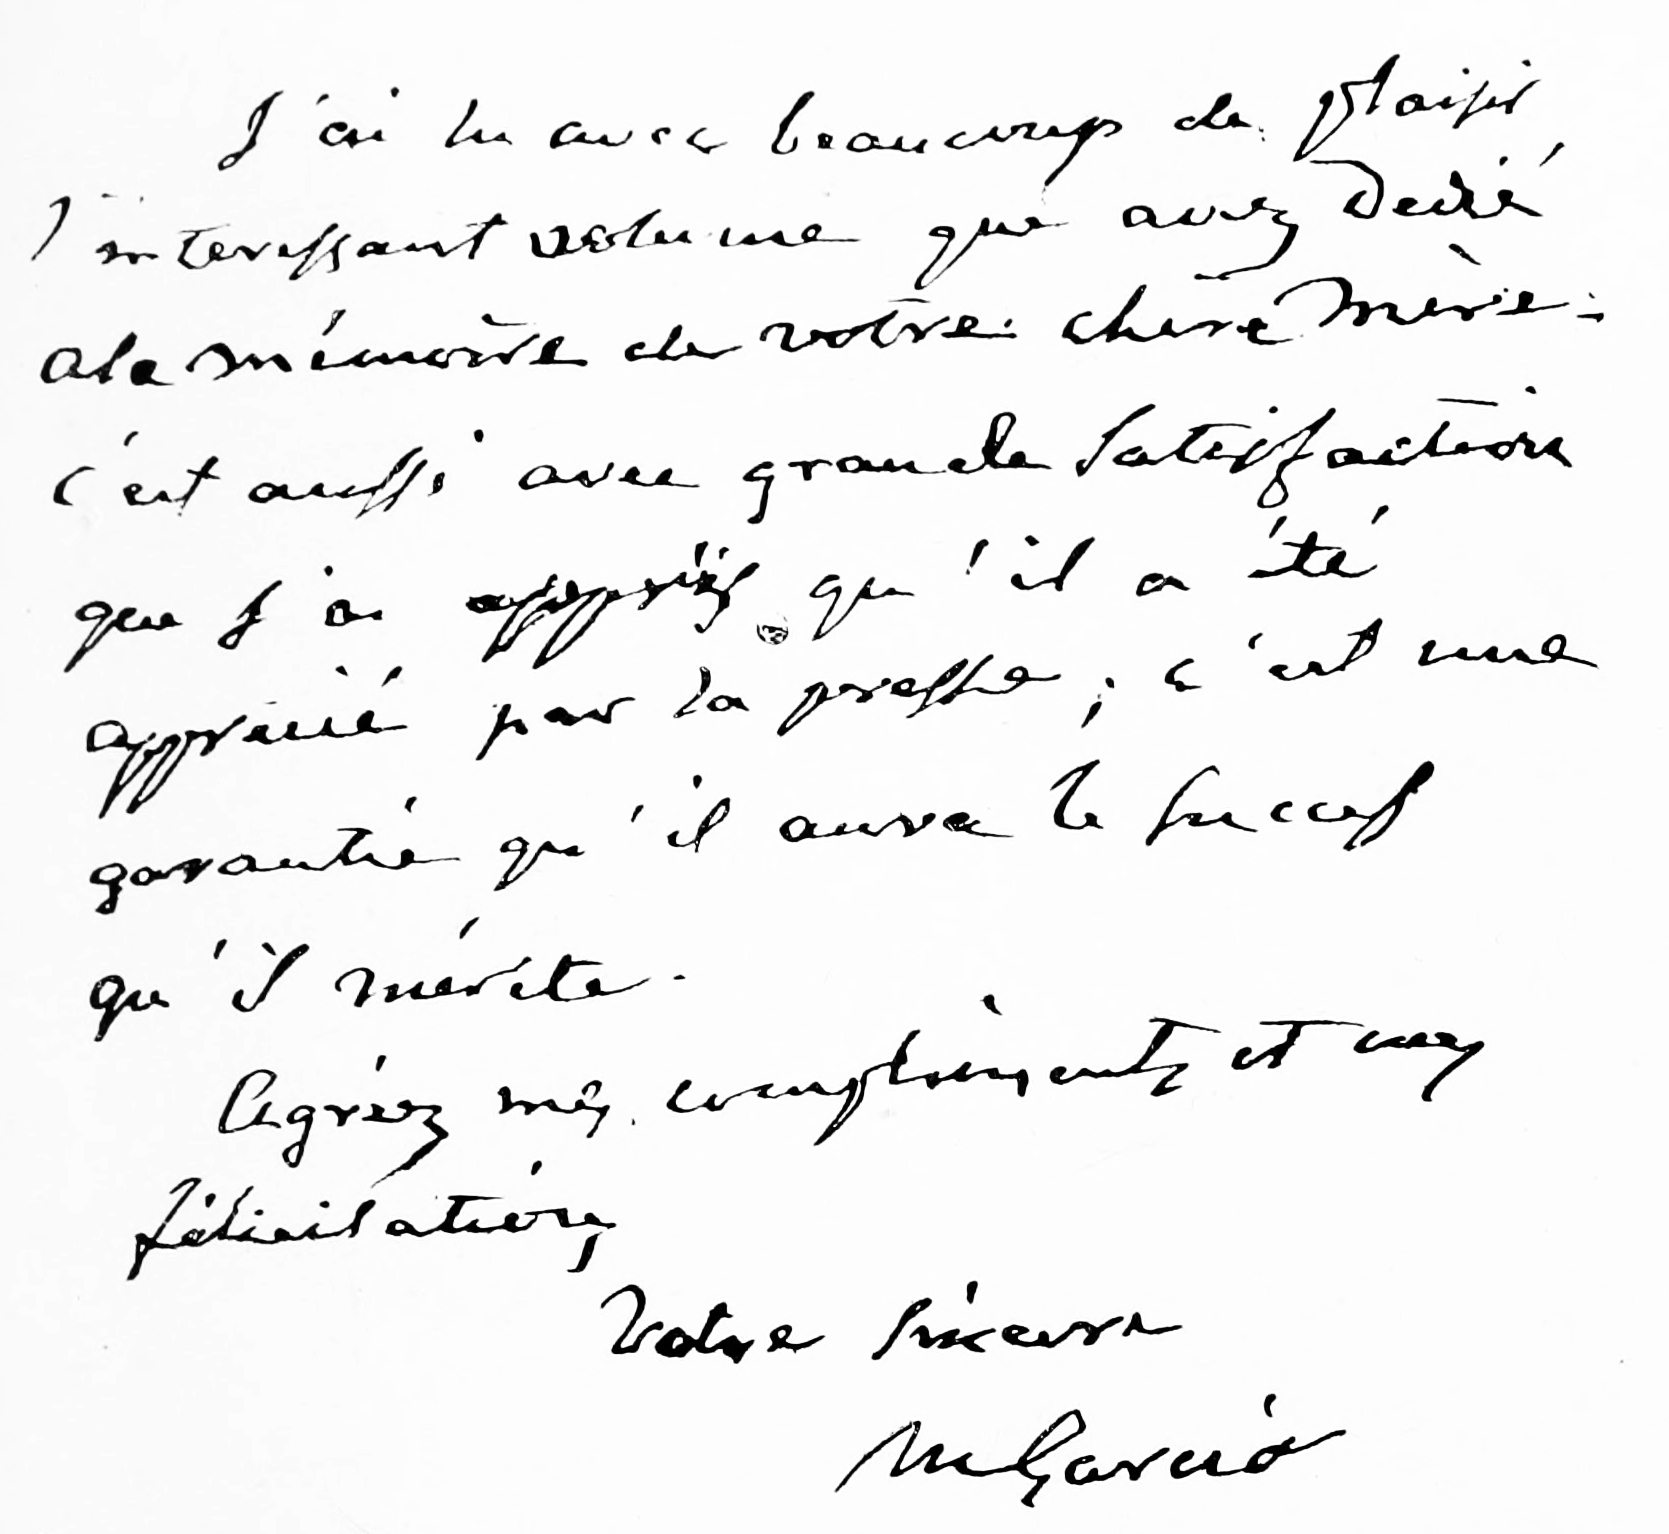 J'ai lu avec beaucoup de plaisir
l'interessant volume que avez Dedié
a la mémoire de votre chère Mère.
c'est aussi avec grande satisfaction
que j'ai appris qu'il a été
apprécié par la presse ; c'est une
garantie qu'il aura le succes
qu'il mérite.
Agréez mes compliments et mes
félicitations
Votre sincere
M Garcia